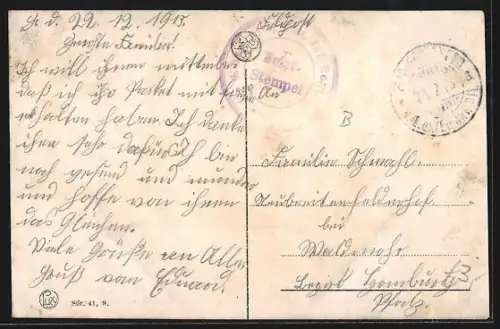 d. 22.12.1915.
Geehrte Familie!
Ich will ihnen mitteilen
daß ich ihr Packet mit
erhalten habe. Ich danke
ihnen sehr dafür. Ich bin
noch gesund und munter
und hoffe von ihnen
das Gleichen.
Viele Grüße an Alle
Gruß von Eduard.
Ser. 41, 8.
Feldpost
Stempel
An
B
Familie Schwahl
bei
Waldmohr
Bezirk Homburg
Pfalz.